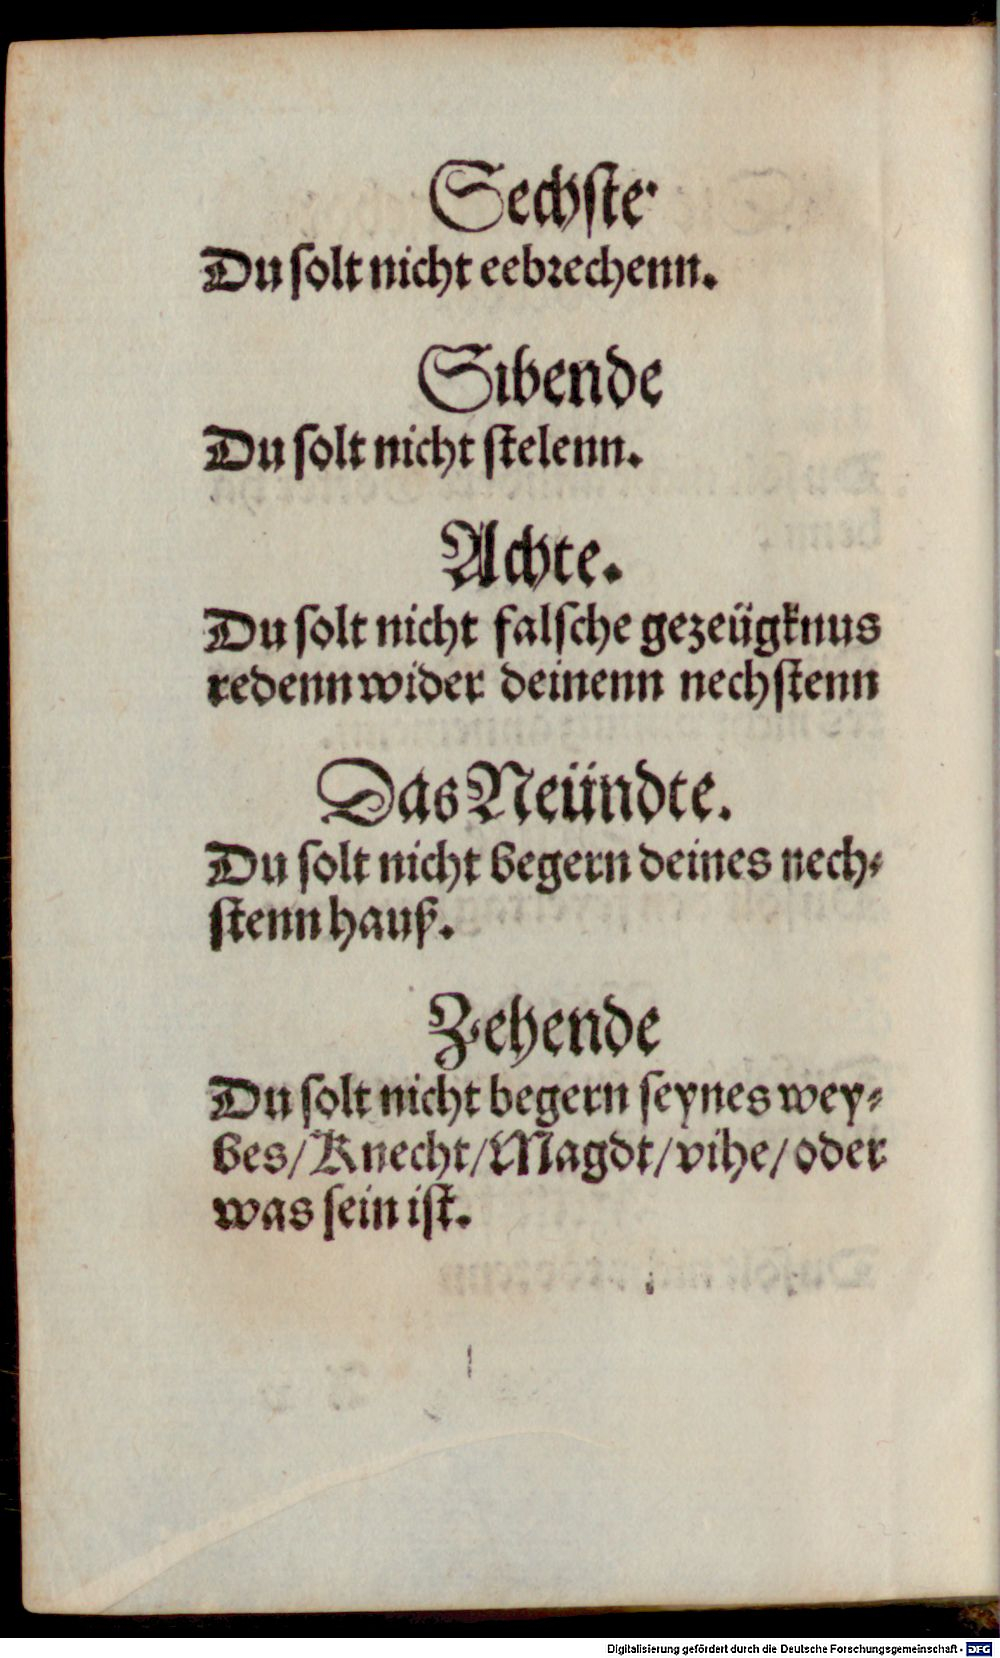 Sechste
Du solt nicht eebrechenn.
Sibende
Du solt nicht stelenn.
Achte.
Du solt nicht falsche gezeügknus
redenn wider deinenn nechstenn
Das Neündte.
Du solt nicht begern deines nech⸗
stenn hauß.
Zehende
Du solt nicht begern seynes wey⸗
bes/ Knecht/ Magdt/ vihe/ oder
was sein ist.
Digitalisierung gefördert durch die Deutsche Forschungsgemeinschaft - DFG